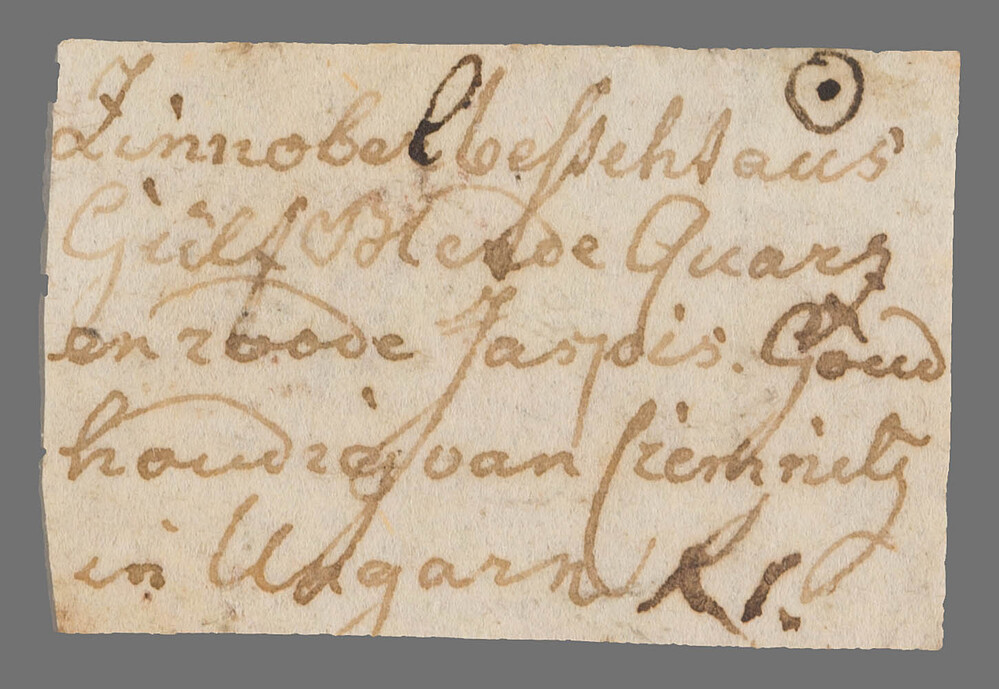 Zinnober besteht aus ☉
Gülf Blende Quarz
en roode Jaspis. Goud
houdig van Cremnitz
in Ungarn